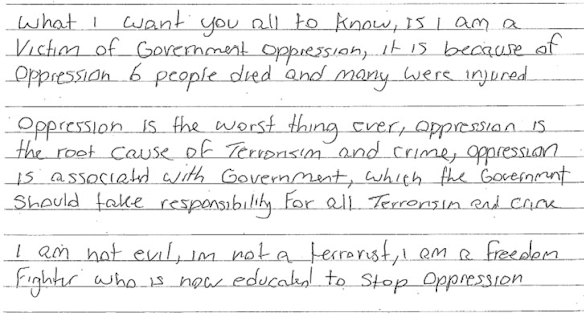 What I want you all to know, is I am a
Victim of Government oppression, it is because of
Oppression 6 people died and many were injured
Oppression is the worst thing ever, oppression is
the root cause of Terrorisim and crime, oppression
is associated with Government, which the Government
Should take responsibility for all Terrorisin and crime
I am not evil, im not a terrorist, I am a freedom
Fighter who is now educated to Stop Oppression